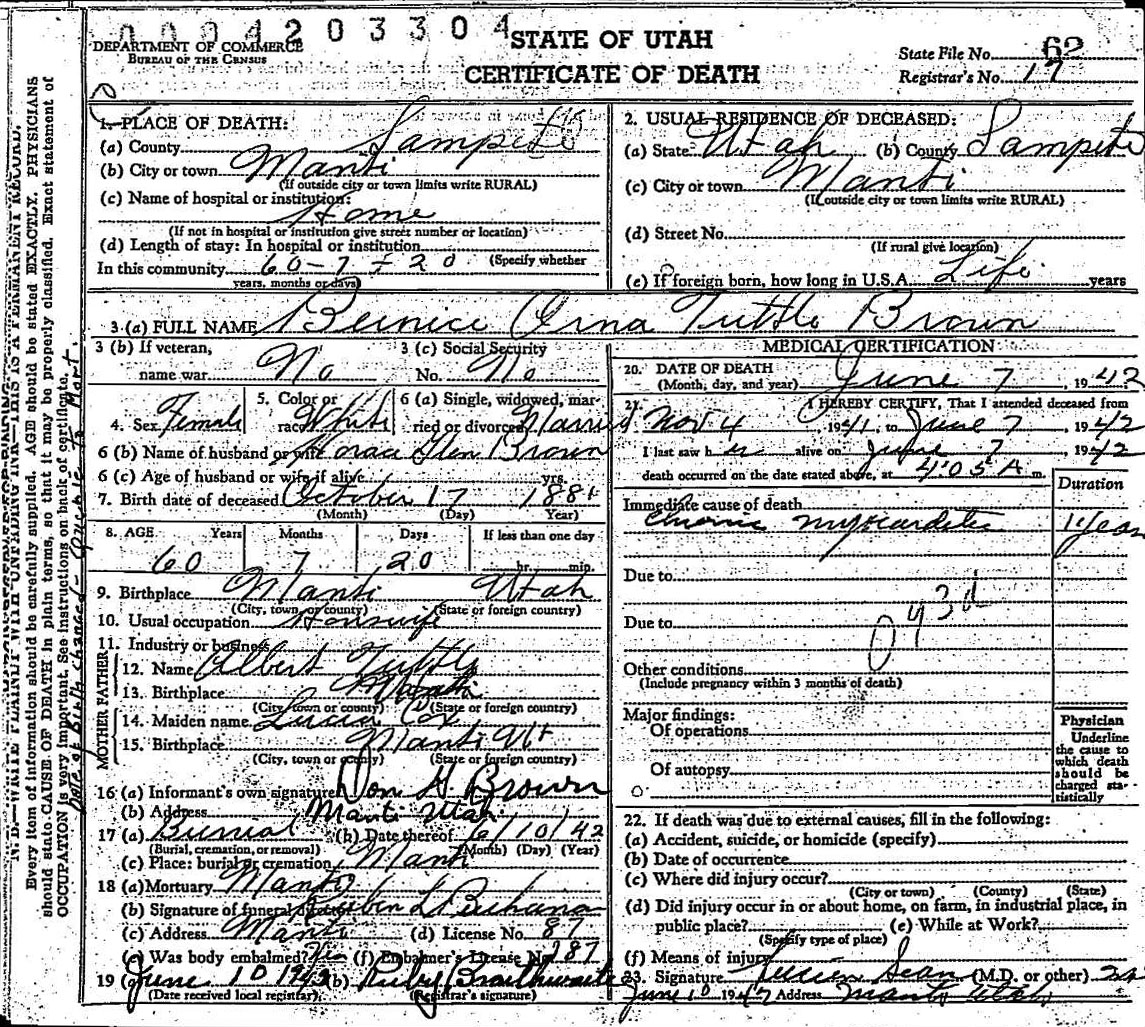 0004203304
DEPARTMENT OF COMMERCE
BUREAU OF THE CENSUS
STATE OF UTAH
CERTIFICATE OF DEATH
State File No. 62
Registrar's No. 17
1. PLACE OF DEATH:
(a) County Sanpete
(b) City or town Manti
(If outside city or town limits write RURAL)
(c) Name of hospital or institution:
Home
(If not in hospital or institution give street number or location)
(d) Length of stay: In hospital or institution
In this community 60-7 + 20 (Specify whether
years, months or days)
2. USUAL RESIDENCE OF DECEASED:
(a) State Utah (b) County Sanpete
(c) City or town Manti
(If outside city or town limits write RURAL)
(d) Street No.
(If rural give location)
(e) If foreign born, how long in U.S.A. Life years
3 (a) FULL NAME Bernice Orna Tuttle Brown
3 (b) If veteran,
name war No
3 (c) Social Security
No. No
4. Sex Female
5. Color or
race White
6 (a) Single, widowed, mar-
ried or divorced Married
6 (b) Name of husband or wife Horace Glen Brown
6 (c) Age of husband or wife if alive yrs.
7. Birth date of deceased October 17 1881
(Month) (Day) Year)
8. AGE Years Months Days If less than one day
60 7 20 hr. min.
9. Birthplace Manti Utah
(City, town or county) (State or foreign country)
10. Usual occupation Housewife
11. Industry or business
FATHER
12. Name Albert Tuttle
13. Birthplace Manti
(City, town or county) (State or foreign country)
MOTHER
14. Maiden name Cox
15. Birthplace Manti Ut
(City, town or county) (State or foreign country)
16 (a) Informant's own signature Don G Brown
(b) Address Manti Utah
17 (a) Burial (b) Date thereof 6/10/42
(Burial, cremation, or removal) (Month) (Day) (Year)
(c) Place: burial or cremation Manti
18 (a) Mortuary Manti
(b) Signature of funeral director Ruben L
(c) Address Manti (d) License No. 87
(e) Was body embalmed? Yes (f) Embalmer's License No. 287
19 (a) June 10 1942 (b) Ruby Braithwaite
(Date received local registrar) (Registrar's signature)
MEDICAL CERTIFICATION
20. DATE OF DEATH
(Month, day, and year) June 7, 1942
21. I HEREBY CERTIFY, That I attended deceased from
Nov 4 1941, to June 7 1942
I last saw her alive on June 7 1942
death occurred on the date stated above, at 4:05 A m.
Duration
Immediate cause of death
Chronic myocarditis 1 year
Due to
Due to
093d
Other conditions
(Include pregnancy within 3 months of death)
Major findings:
Of operations
Of autopsy
Physician
Underline
the cause to
which death
should be
charged sta-
tistically
22. If death was due to external causes, fill in the following:
(a) Accident, suicide, or homicide (specify)
(b) Date of occurrence
(c) Where did injury occur?
(City or town) (County) (State)
(d) Did injury occur in or about home, on farm, in industrial place, in
public place? (e) While at Work?
(Specify type of place)
(f) Means of injury
23. Signature Lucien Sears (M.D. or other)
June 10 1942 Address Manti Utah
N. B.—WRITE PLAINLY WITH UNFADING INK—THIS IS A PERMANENT RECORD.
Every item of information should be carefully supplied. AGE should be stated EXACTLY. PHYSICIANS
should state CAUSE OF DEATH in plain terms, so that it may be properly classified. Exact statement of
OCCUPATION is very important. See instructions on back of certificate.
Date of Birth changed